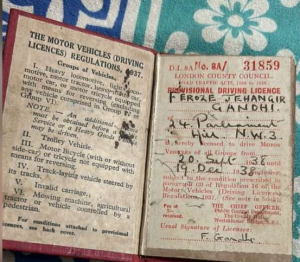 THE MOTOR VEHICLES (DRIVING
LICENCES) REGULATIONS, 1937.
Groups of Vehicles.
I. Heavy locomotive, light
motive, motor tractor,
motor car, or motor tricycle
with means for reversing, equipped
Group VI:
NOTE.—An additional
must be obtained before a
may drive a Heavy Goods
II. Trolley Vehicle.
III. Motor Bicycle (with or without
means for reversing not equipped with
IV. Track-laying vehicle steered by
its tracks.
V. Invalid carriage.
VI. Mowing machine, agricultural
tractor or vehicle controlled by a
pedestrian.
For conditions attached to provisional
licences, see back cover.
D.L. 8A/No. 8A/ 31859
LONDON COUNTY COUNCIL.
ROAD TRAFFIC ACTS, 1930 to
PROVISIONAL DRIVING LICENCE
FEROZE JEHANGIR
GANDHI.
24
N.W.3.
is hereby licensed to drive Motor
Vehicles of all Groups from
20 Sept 1938 until
19 Dec 1938
the condition prescribed in
paragraph of Regulation 16 of the
Motor Vehicles (Driving Licences)
Regulations, 1937.
THE CHIEF OFFICER.
Usual Signature of Licensee:
F. Gandhi